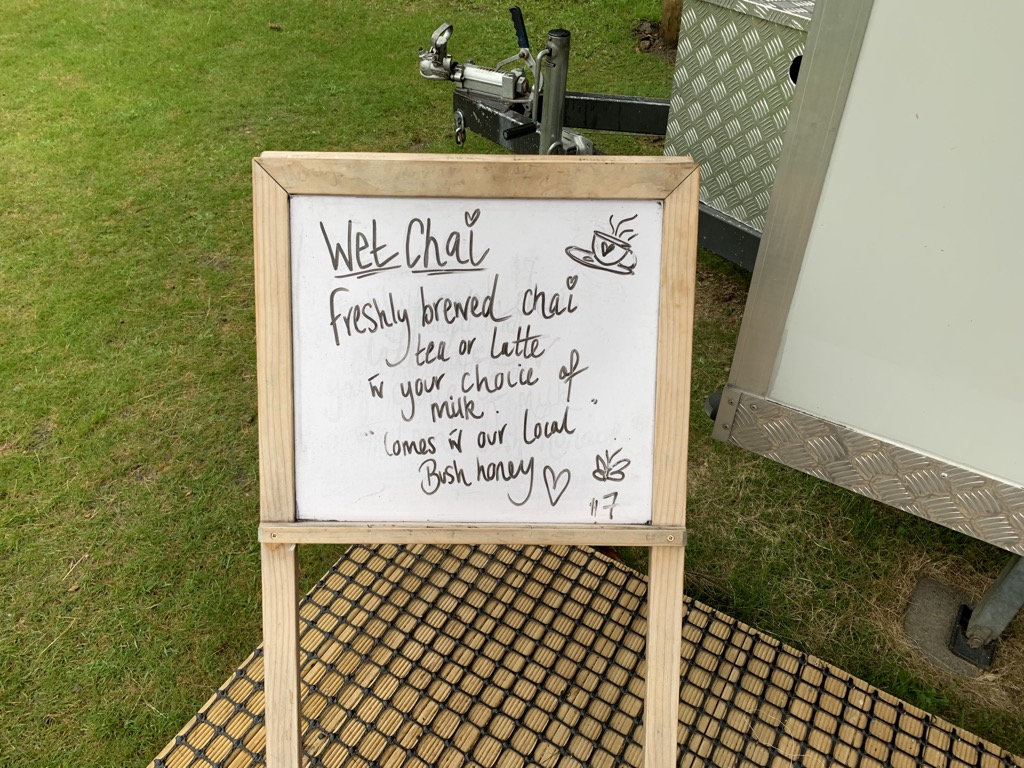 Wet Chai
freshly brewed chai
tea or latte
w your choice of
milk.
"Comes w our local"
Bush honey
"7